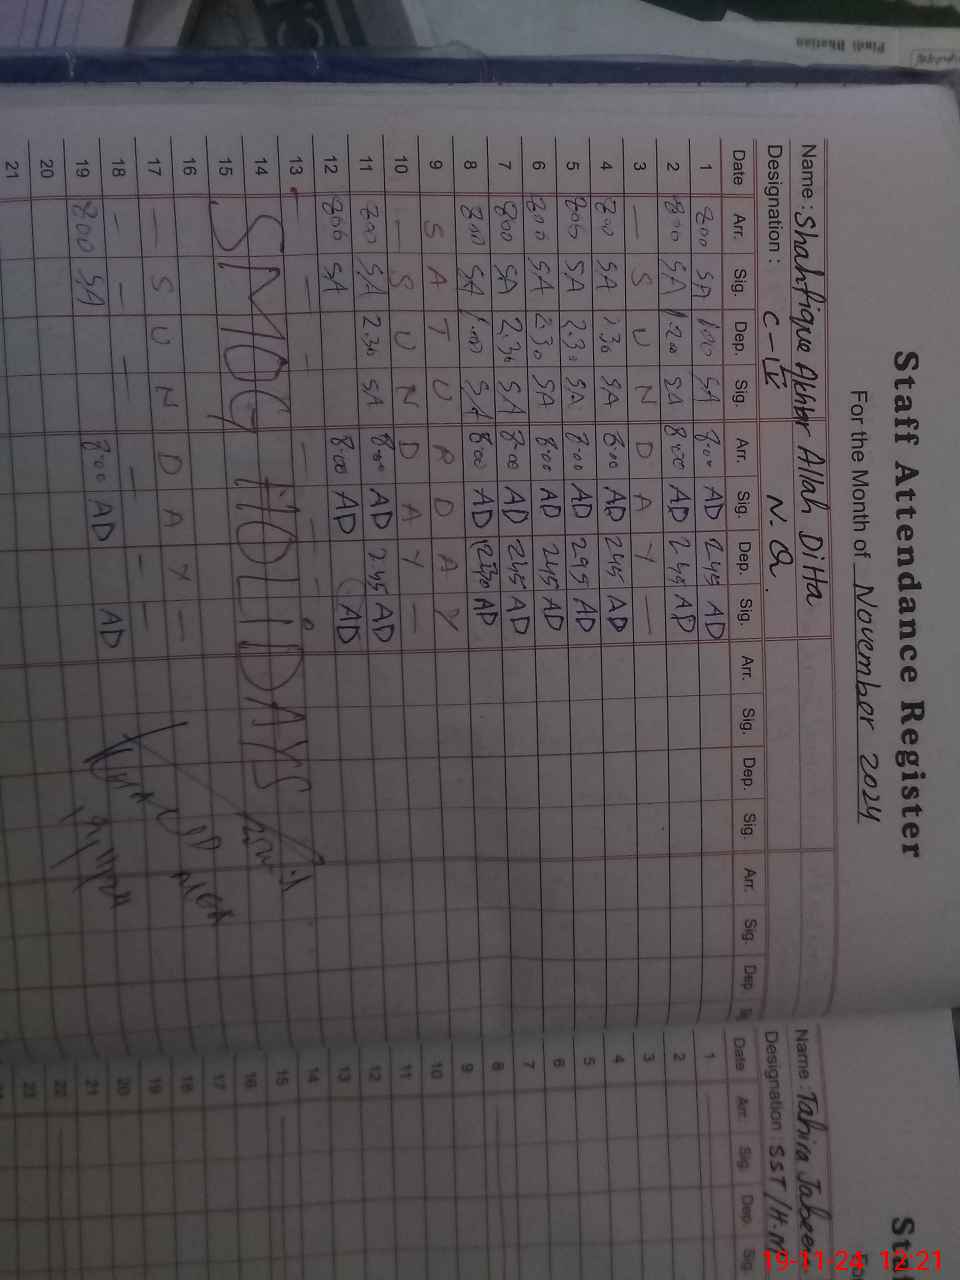 Staff Attendance Register
For the Month of November 2024
Name : Shahfique Akhbr Allah Ditta
Designation : C-IV N.Q.
Date Arr. Sig. Dep. Sig. Arr. Sig. Dep. Sig. Arr. Sig. Dep. Sig. Arr. Sig. Dep
1 800 SA 1.00 SA 8.00 AD 245 AD
2 800 SA 1.200 SA 8.00 AD 245 AD
3 — S U N D A Y —
4 800 SA 2.30 SA 8.00 AD 245 AD
5 800 SA 2.30 SA 8.00 AD 295 AD
6 800 SA 2.30 SA 8.00 AD 245 AD
7 800 SA 2.30 SA 8.00 AD 245 AD
8 800 SA 1.00 SA 800 AD 1230 AD
9 S A T U R D A Y
10 — S U N D A Y —
11 800 SA 2.30 SA 8.00 AD 245 AD
12 800 SA 8.00 AD AD
13
14 SMOG HOLIDAYS
15
16
17 — S U N D A Y —
18
19 800 SA 8.00 AD AD
20
21
Name : Tahira Jabeen
Designation : SST/H.M
Date Arr. Sig. Dep. Sig.
1
2
3
4
5
6
7
8
9
10
11
12
13
14
15
16
17
18
19
20
21
22
23
Pindi Bhattian
19-11-24 12:21